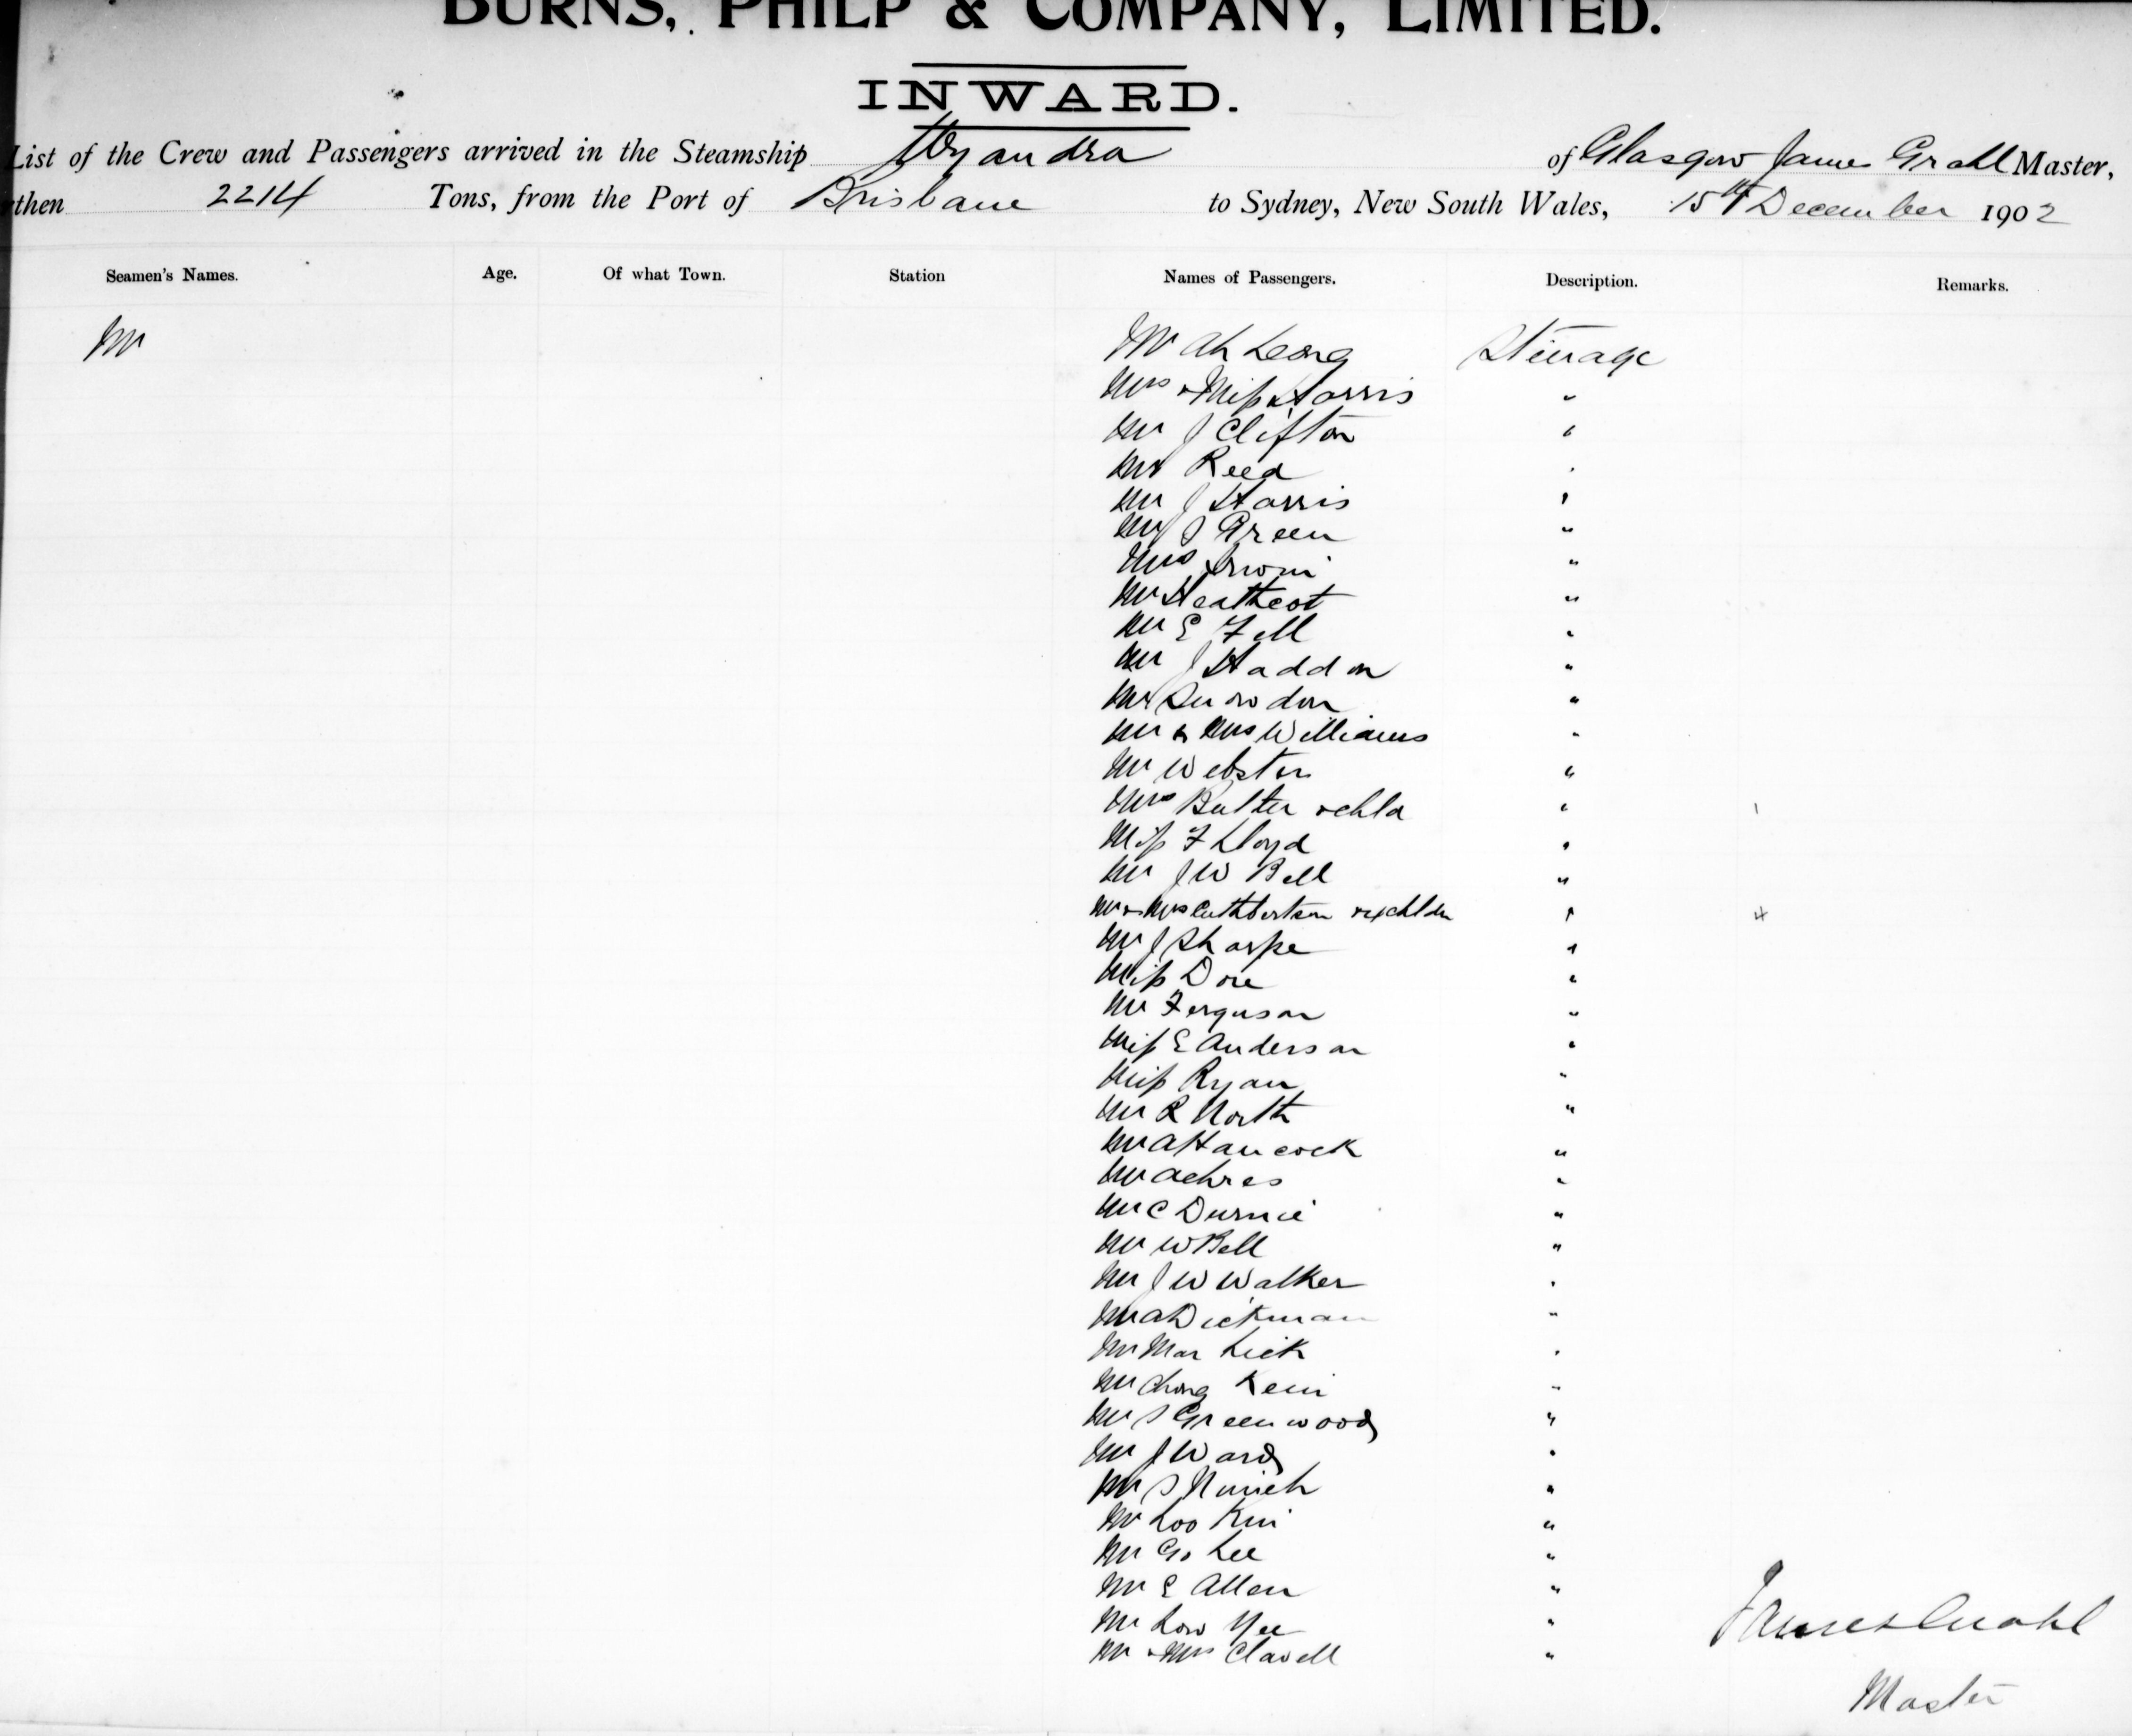 BURNS, PHILP & COMPANY, LIMITED.
INWARD.
List of the Crew and Passengers arrived in the Steamship Wyandra of Glasgow James Grahl Master,
then 2214 Tons, from the Port of Brisbane to Sydney, New South Wales, 15th December 1902
Seamen's Names. Age. Of what Town. Station Names of Passengers. Description. Remarks.
Mr Mr Ah Leong Steerage
Mrs & Miss Harris "
Mr J Clifton "
Mr Reed "
Mr J Harris "
Mr S Green "
Mrs "
Mr Heathcot "
Mr E Fell "
Mr J Haddon "
Mr Snowdon "
Mr & Mrs Williams "
Mr Webster "
Mrs Butler & chld " 1
Miss F Lloyd "
Mr J W Bell "
Mr & Mrs Cuthbertson & 4 chldn " 4
Mr J Sharpe "
Miss Dore "
Mr Ferguson "
Miss E Anderson "
Miss Ryan "
Mr R North "
Mr A Hancock "
Mr "
Mr C Durnie "
Mr W Bell "
Mr J W Walker "
Mr A Dickman "
Mr Mar Lick "
Mr Chong "
Mr S Greenwood "
Mr J Ward "
Mr S "
Mr Loo "
Mr Go Lee "
Mr E Allen "
Mr Low Yee "
Mr & Mrs Clavell "
James Grahl
Master